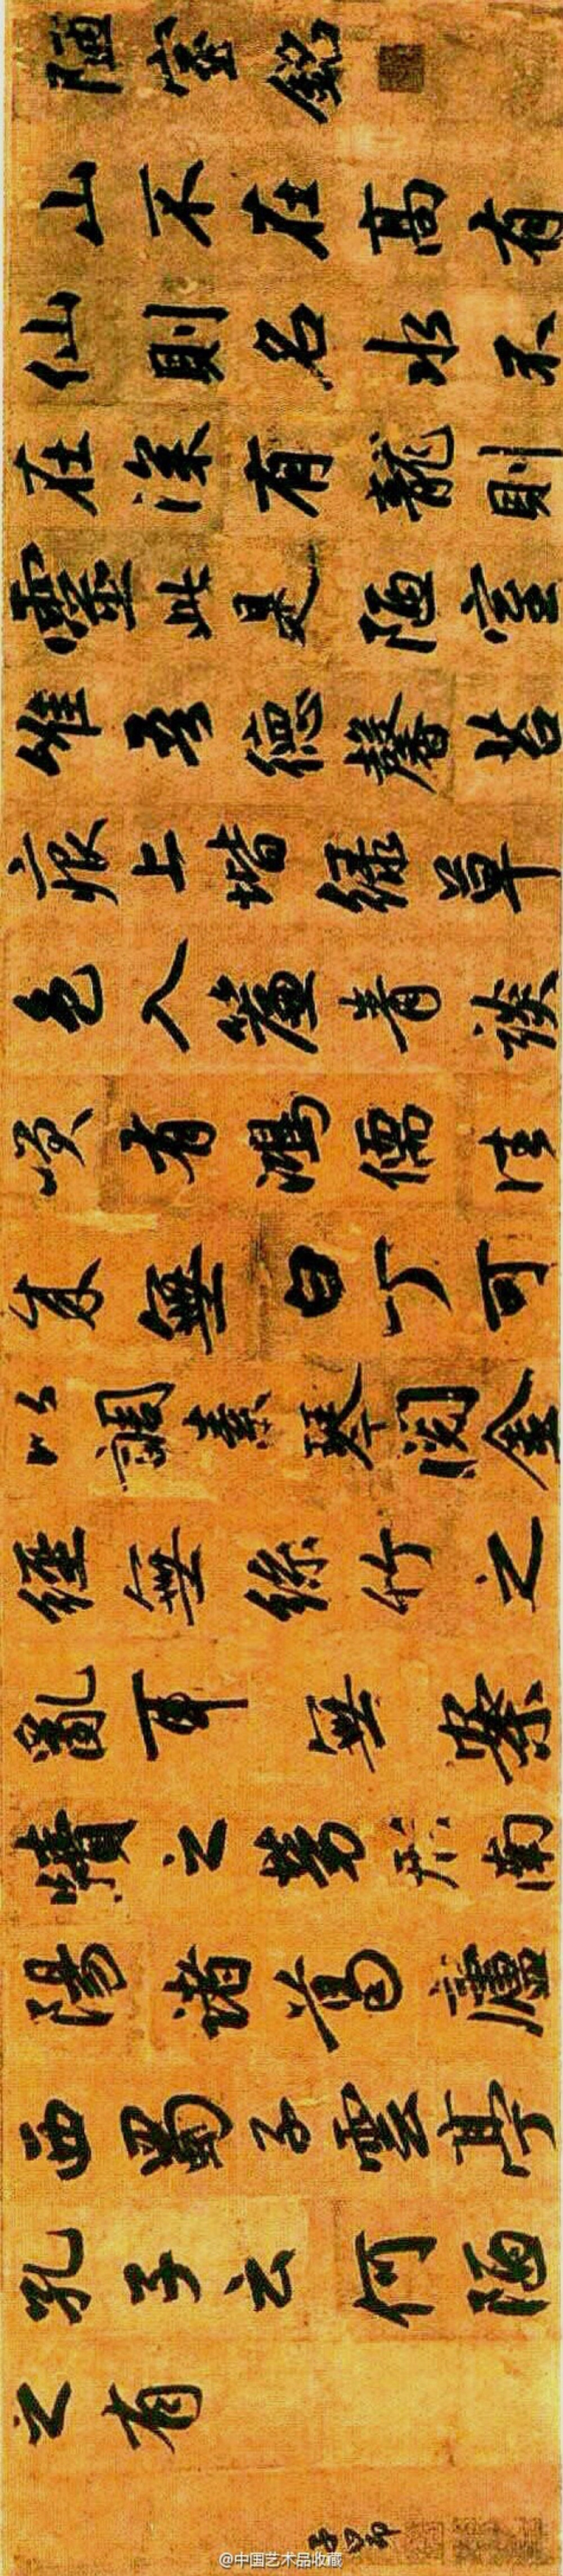 陋室銘
山不在高有
仙則名水不
在深有龍則
靈此是陋室
唯吾德馨苔
痕上堦綠草
色入簾青談
咲有鴻儒往
來無白丁可
以調素琴閱金
經無絲竹之
亂耳無案
牘之勞形南
陽諸葛廬
西蜀子雲亭
孔子云何陋
之有
子昂
@中国艺术品收藏